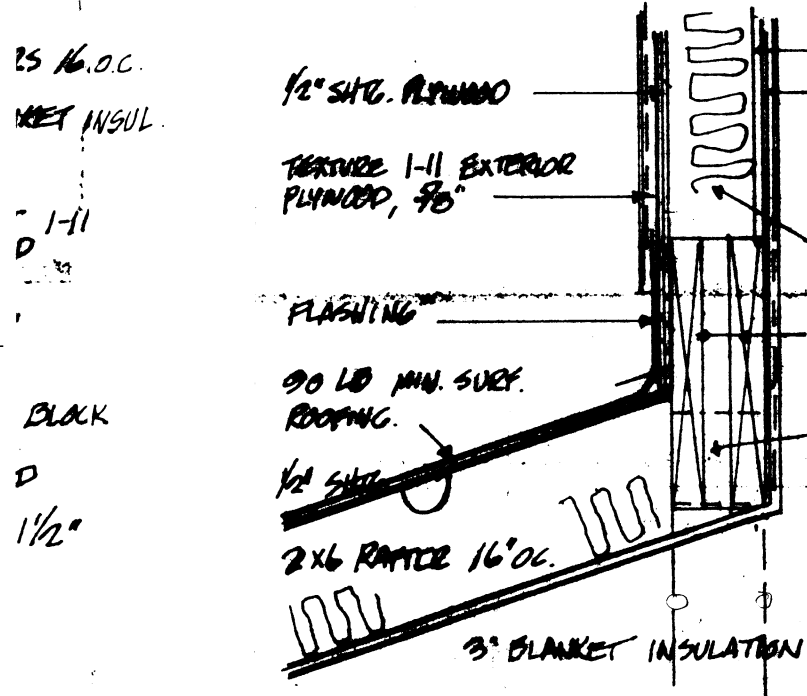 16.O.C.
INSUL.
1-11
D
BLOCK
D
1 1/2"
1/2" SHTG. PLYWOOD
TEXTURE 1-11 EXTERIOR
PLYWOOD, 5/8"
FLASHING
90 LB MIN. SURF.
ROOFING.
1/2" SHTG.
2X6 RAFTER 16" OC.
3" BLANKET INSULATION